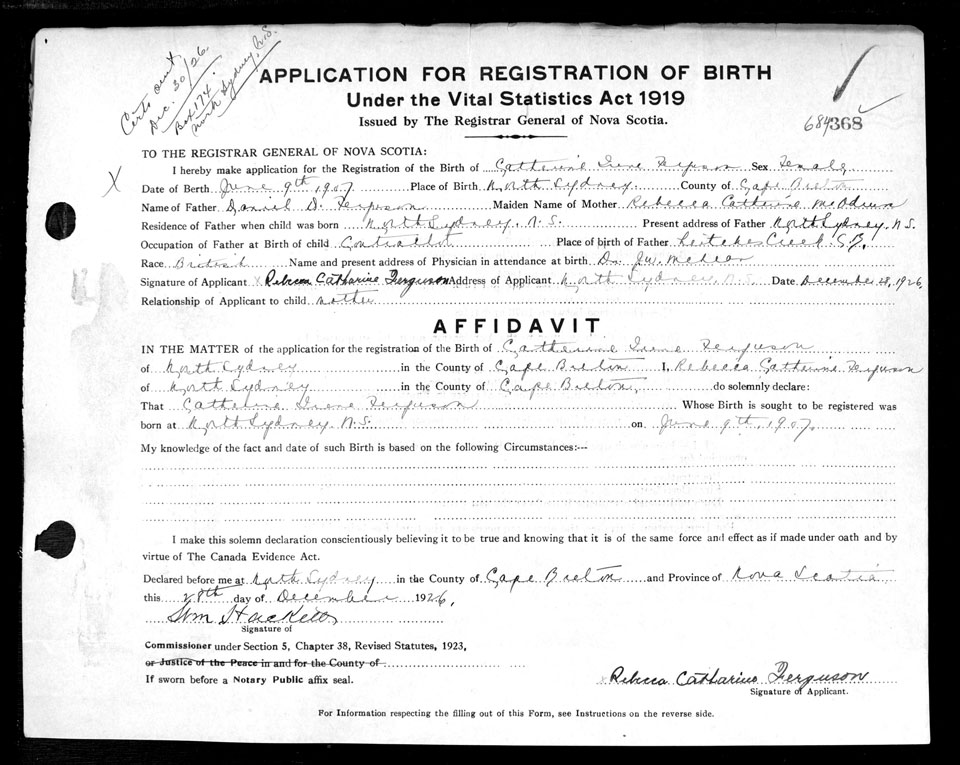 Certs sent
Dec. 30/26.
Box 174.
North Sydney, N.S.
APPLICATION FOR REGISTRATION OF BIRTH
Under the Vital Statistics Act 1919
Issued by The Registrar General of Nova Scotia.
684368
TO THE REGISTRAR GENERAL OF NOVA SCOTIA:
I hereby make application for the Registration of the Birth of Catherine Irene Ferguson Sex Female
X
Date of Berth June 9th, 1907 Place of Birth North Sydney County of Cape Breton
Name of Father Daniel D. Ferguson Maiden Name of Mother Rebecca Catherine
Residence of Father when child was born North Sydney, N.S. Present address of Father North Sydney, N.S.
Occupation of Father at Birth of child Contractor Place of birth of Father Leitches Creek, C.B.
Race British Name and present address of Physician in attendance at birth Dr. McLean
Signature of Applicant x Rebecca Catharine Ferguson Address of Applicant North Sydney N.S. Date December 28, 1926,
Relationship of Applicant to child mother
AFFIDAVIT
IN THE MATTER of the application for the registration of the Birth of Catherine Irene Ferguson
of North Sydney in the County of Cape Breton I, Rebecca Catherine Ferguson
of North Sydney in the County of Cape Breton, do solemnly declare:
That Catherine Irene Ferguson Whose Birth is sought to be registered was
born at North Sydney. N.S. on June 9th, 1907.
My knowledge of the fact and date of such Birth is based on the following Circumstances:--
I make this solemn declaration conscientiously believing it to be true and knowing that it is of the same force and effect as if made under oath and by
virtue of The Canada Evidence Act.
Declared before me at North Sydney in the County of Cape Breton and Province of Nova Scotia
this 28th day of December 1926,
Wm Hackett
Signature of
Commissioner under Section 5, Chapter 38, Revised Statutes, 1923,
or Justice of the Peace in and for the County of
If sworn before a Notary Public affix seal.
x Rebecca Catharine Ferguson
Signature of Applicant.
For Information respecting the filling out of this Form, see Instructions on the reverse side.